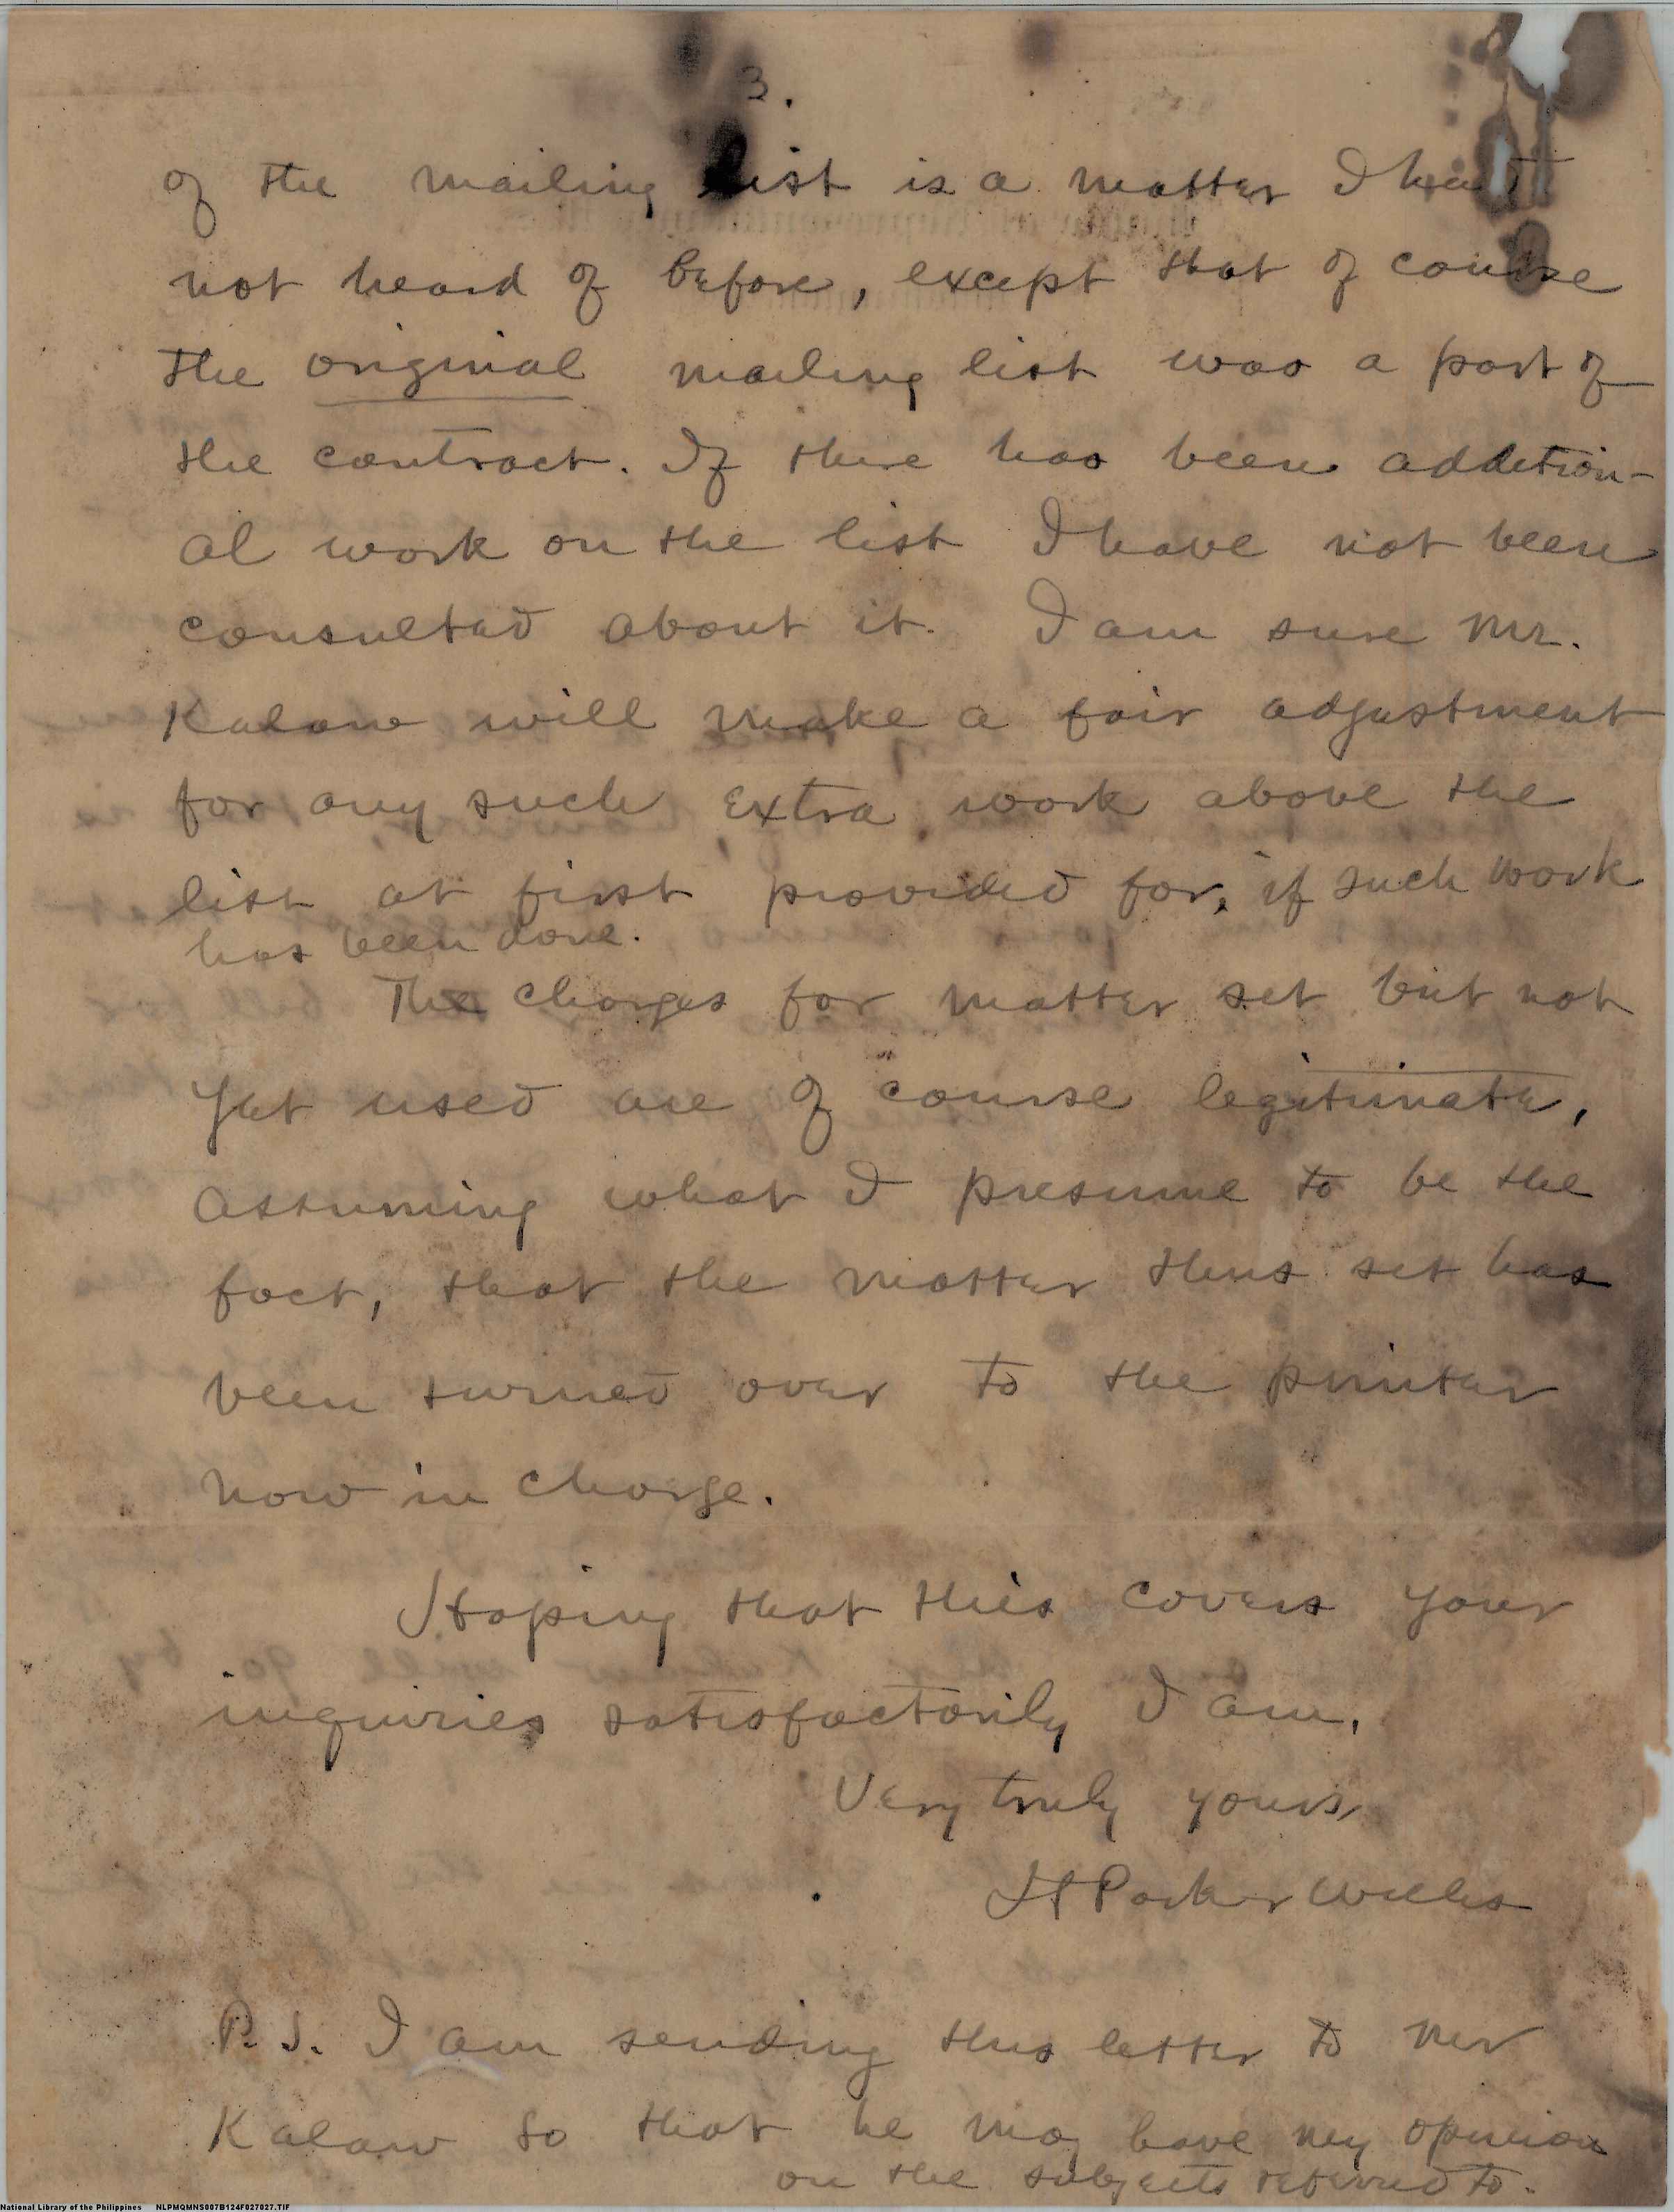 3.
of the mailing list is a matter I had
not heard of before, except that of course
the original mailing list was a part of
the contract. If there has been addition-
al work on the list I have not been
consulted about it. I am sure Mr.
Kalaw will make a fair adjustment
for any such extra work above the
list at first provided for, if such work
has been done.
The charges for matter set but not
yet used are of course legitimate,
assuming what I presume to be the
fact, that the matter thus set has
been turned over to the printer
now in charge.
Hoping that this covers your
inquiries satisfactorily I am,
Very truly yours,
H Parker Willis
P.S. I am sending this letter to Mr
Kalaw so that he may have my opinion
on the subjects referred to.
National Library of the Philippines NLPMQMNS007B124F027027.TIF